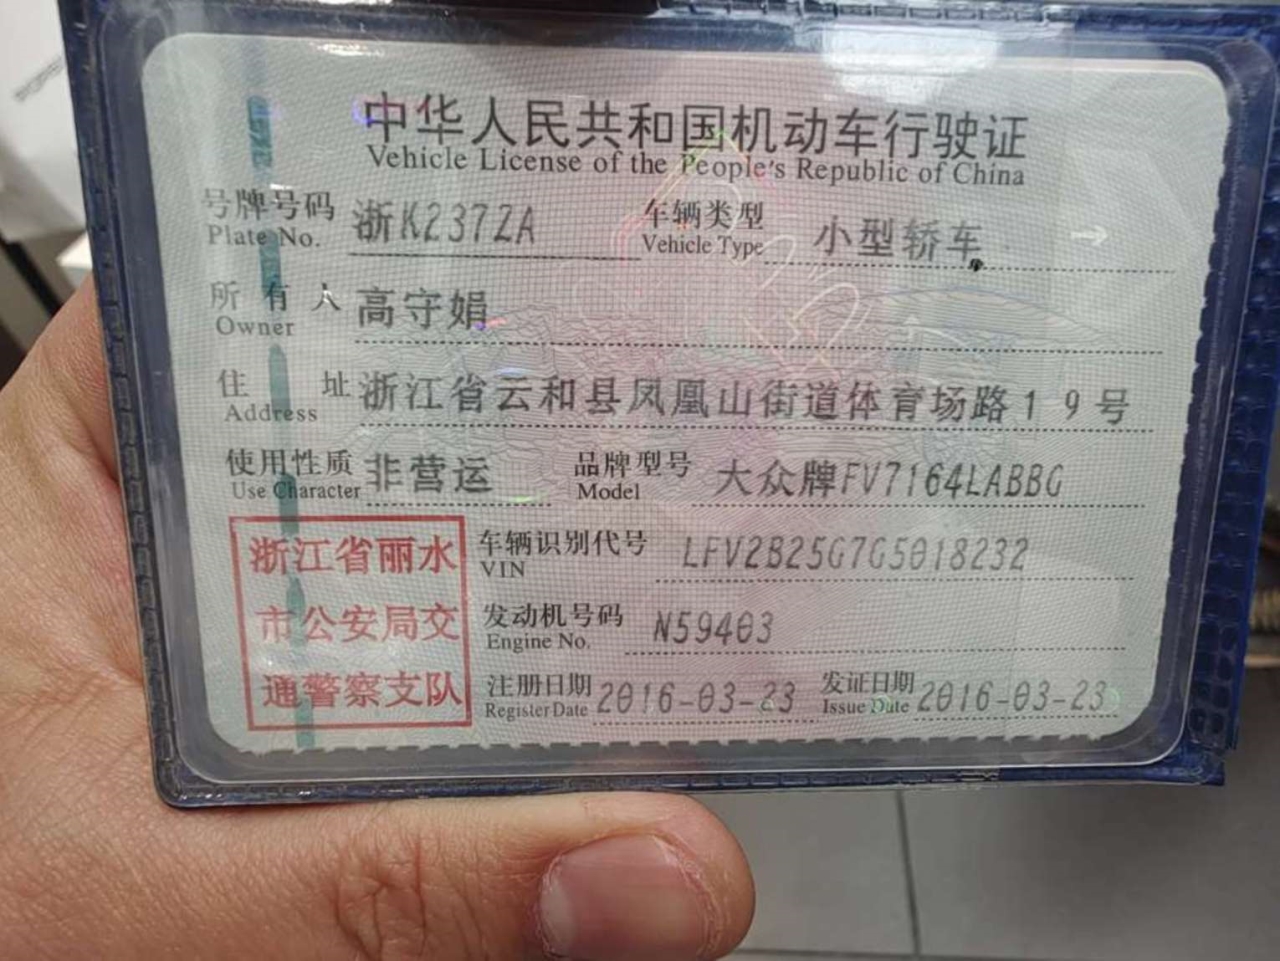 中华人民共和国机动车行驶证
Vehicle License of the People's Republic of China
号牌号码 浙K237ZA 车辆类型 小型轿车
Plate No. Vehicle Type
所有人 高守娟
Owner
住址 浙江省云和县凤凰山街道体育场路19号
Address
使用性质 非营运 品牌型号 大众牌FV7164LABBG
Use Character Model
浙江省丽水
市公安局交
通警察支队
车辆识别代号 LFV2B25G7G5018232
VIN
发动机号码 N59403
Engine No.
注册日期 2016-03-23 发证日期 2016-03-23
Register Date Issue Date